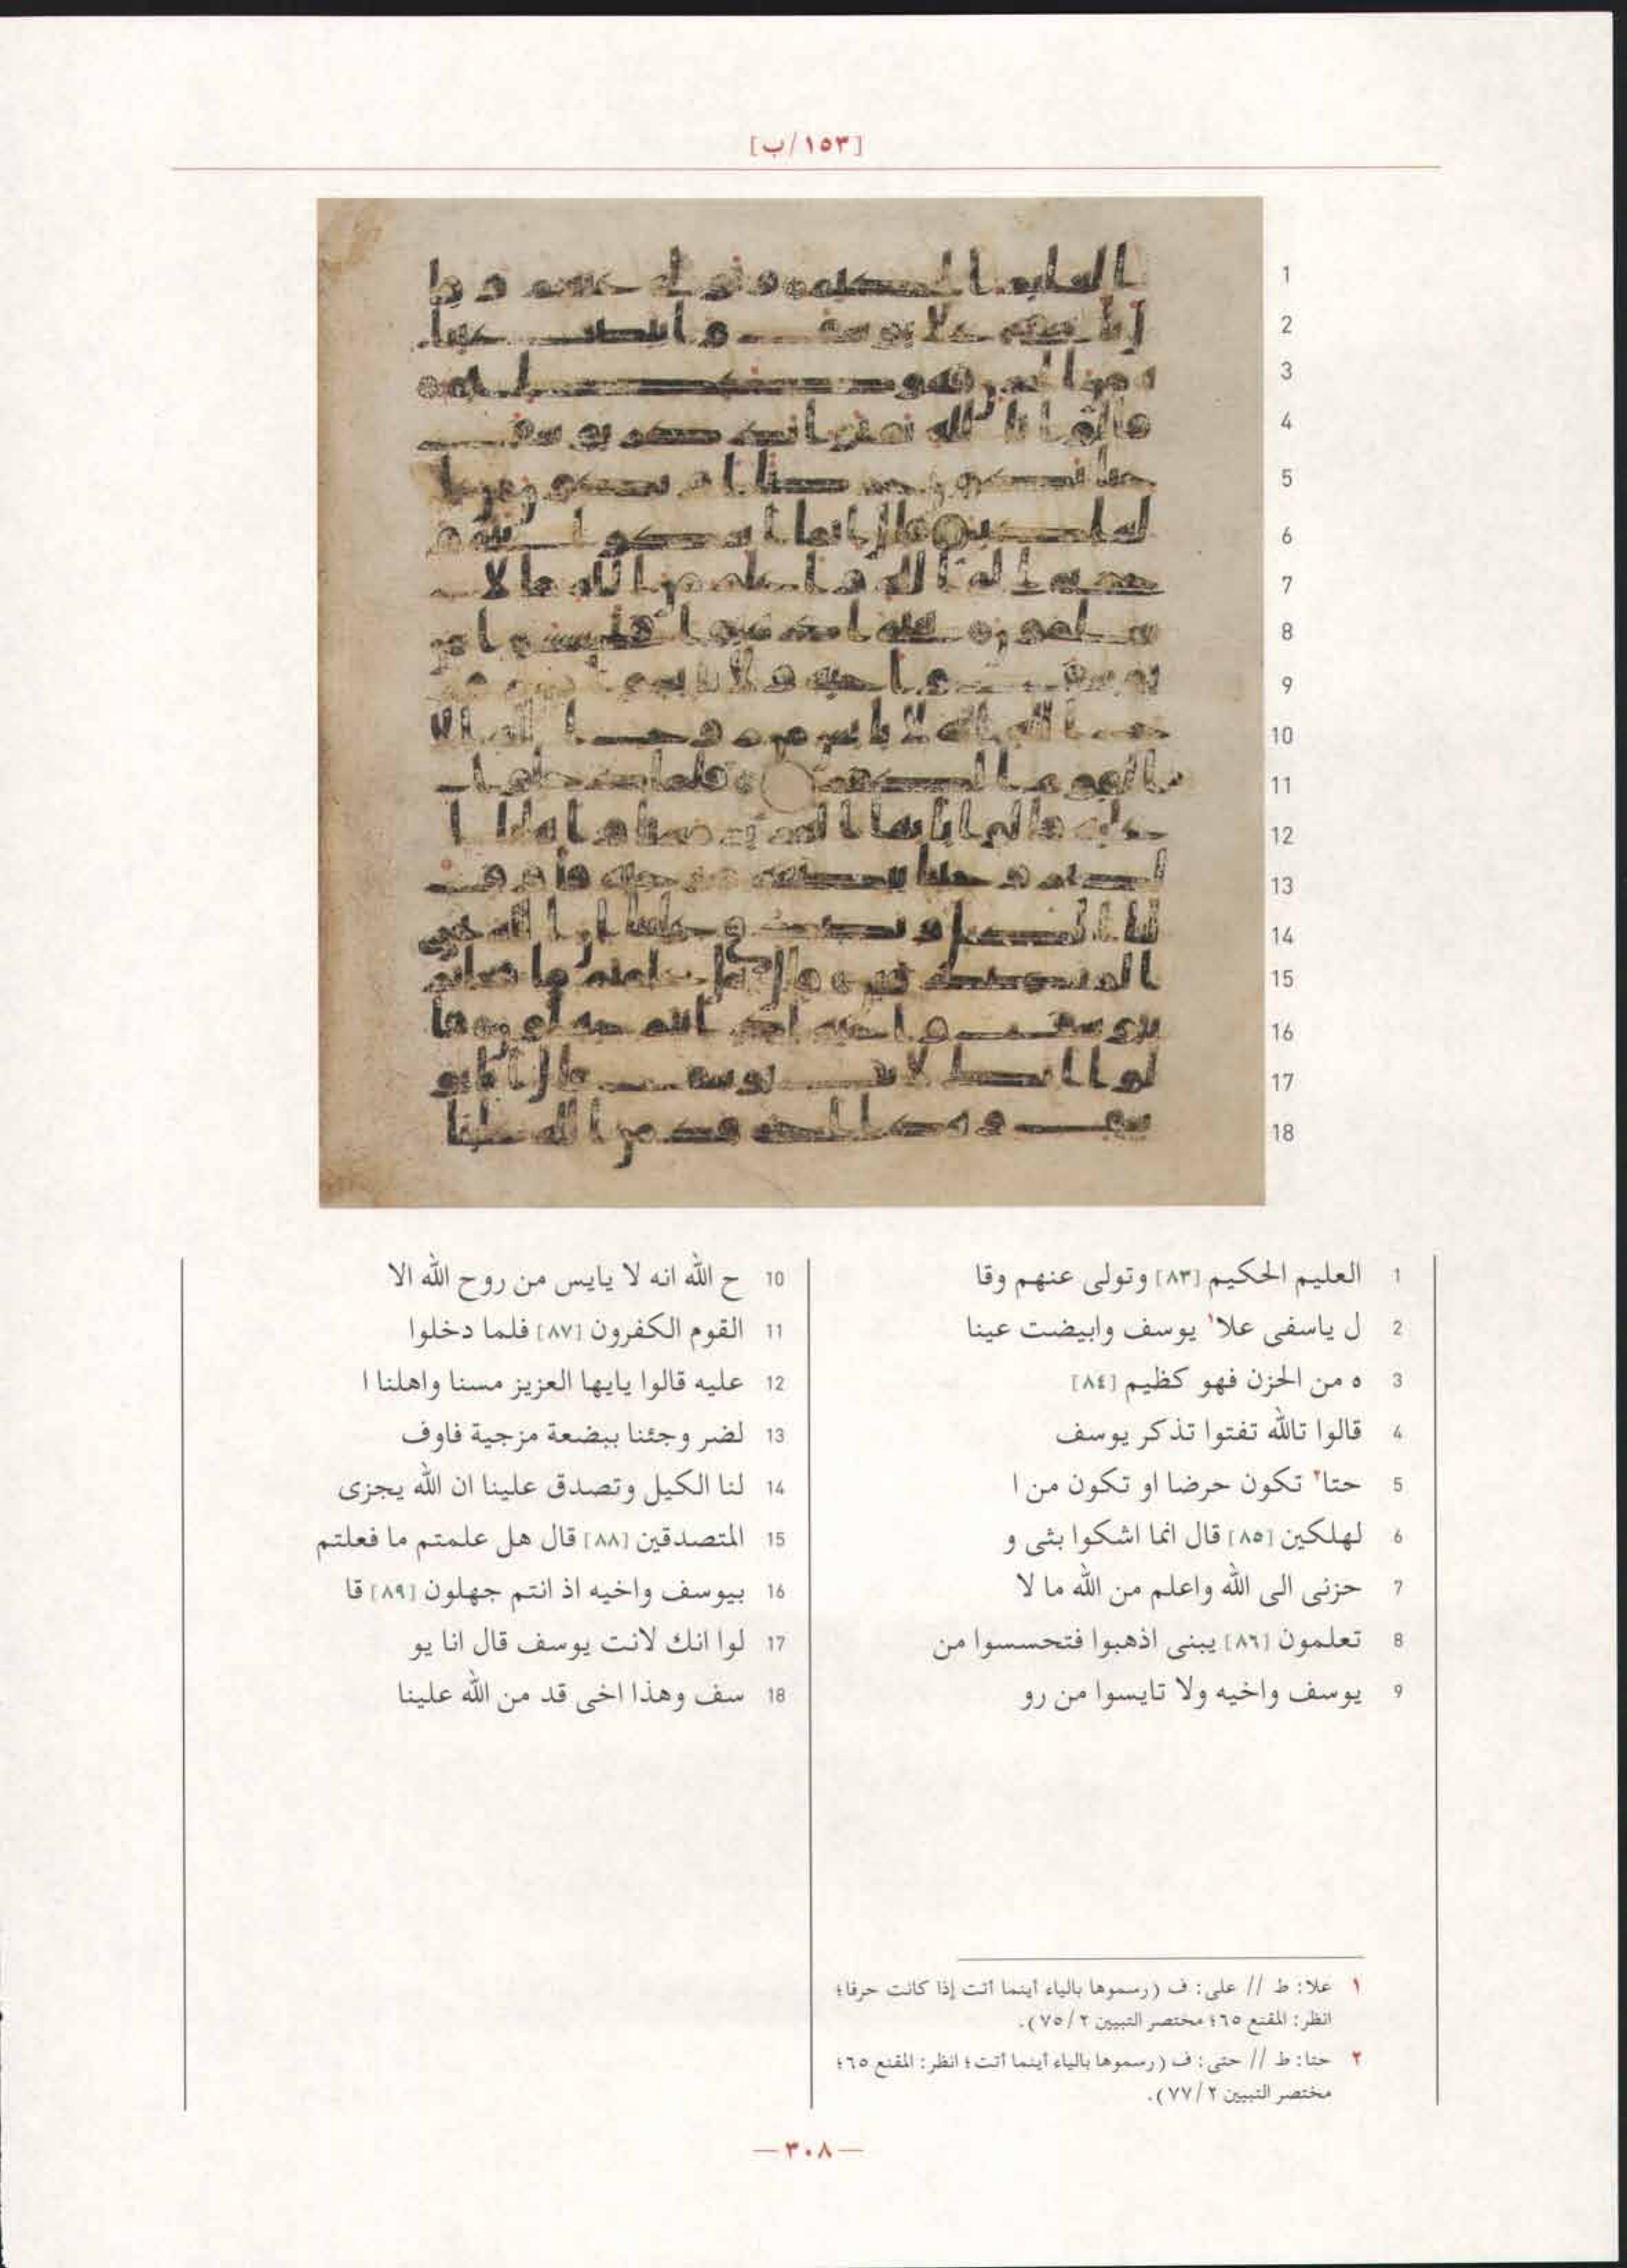 [١٥٣/ب]
1 العليم الحكيم [٨٣] وتولى عنهم وقا
2 ل ياسفى علا١ يوسف وابيضت عينا
3 ه من الحزن فهو كظيم [٨٤]
4 قالوا تالله تفتوا تذكر يوسف
5 حتا٢ تكون حرضا او تكون من ا
6 لهلكين [٨٥] قال انما اشكوا بثى و
7 حزنى الى الله واعلم من الله ما لا
8 تعلمون [٨٦] يبنى اذهبوا فتحسسوا من
9 يوسف واخيه ولا تايسوا من رو
10 ح الله انه لا يايس من روح الله الا
11 القوم الكفرون [٨٧] فلما دخلوا
12 عليه قالوا يايها العزيز مسنا واهلنا ا
13 لضر وجئنا ببضعة مزجية فاوف
14 لنا الكيل وتصدق علينا ان الله يجزى
15 المتصدقين [٨٨] قال هل علمتم ما فعلتم
16 بيوسف واخيه اذ انتم جهلون [٨٩] قا
17 لوا انك لانت يوسف قال انا يو
18 سف وهذا اخى قد من الله علينا
١ علا: ط // على: ف (رسموها بالياء أينما أتت إذا كانت حرفا؛
انظر: المقنع ٦٥؛ مختصر التبيين ٢/ ٧٥).
٢ حتا: ط // حتى: ف (رسموها بالياء أينما أتت؛ انظر: المقنع ٦٥؛
مختصر التبيين ٢/ ٧٧).
— ٣٠٨ —